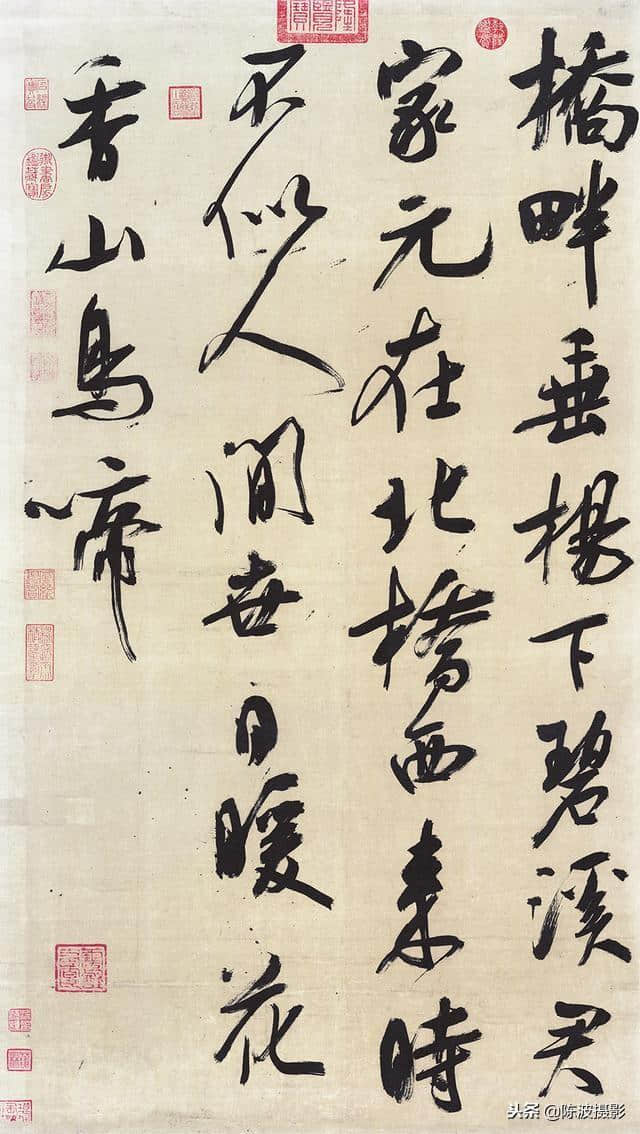 橋畔垂楊下碧溪君
家元在北橋西来時
不似人間世日暖花
香山鳥啼
头条 @陈波摄影